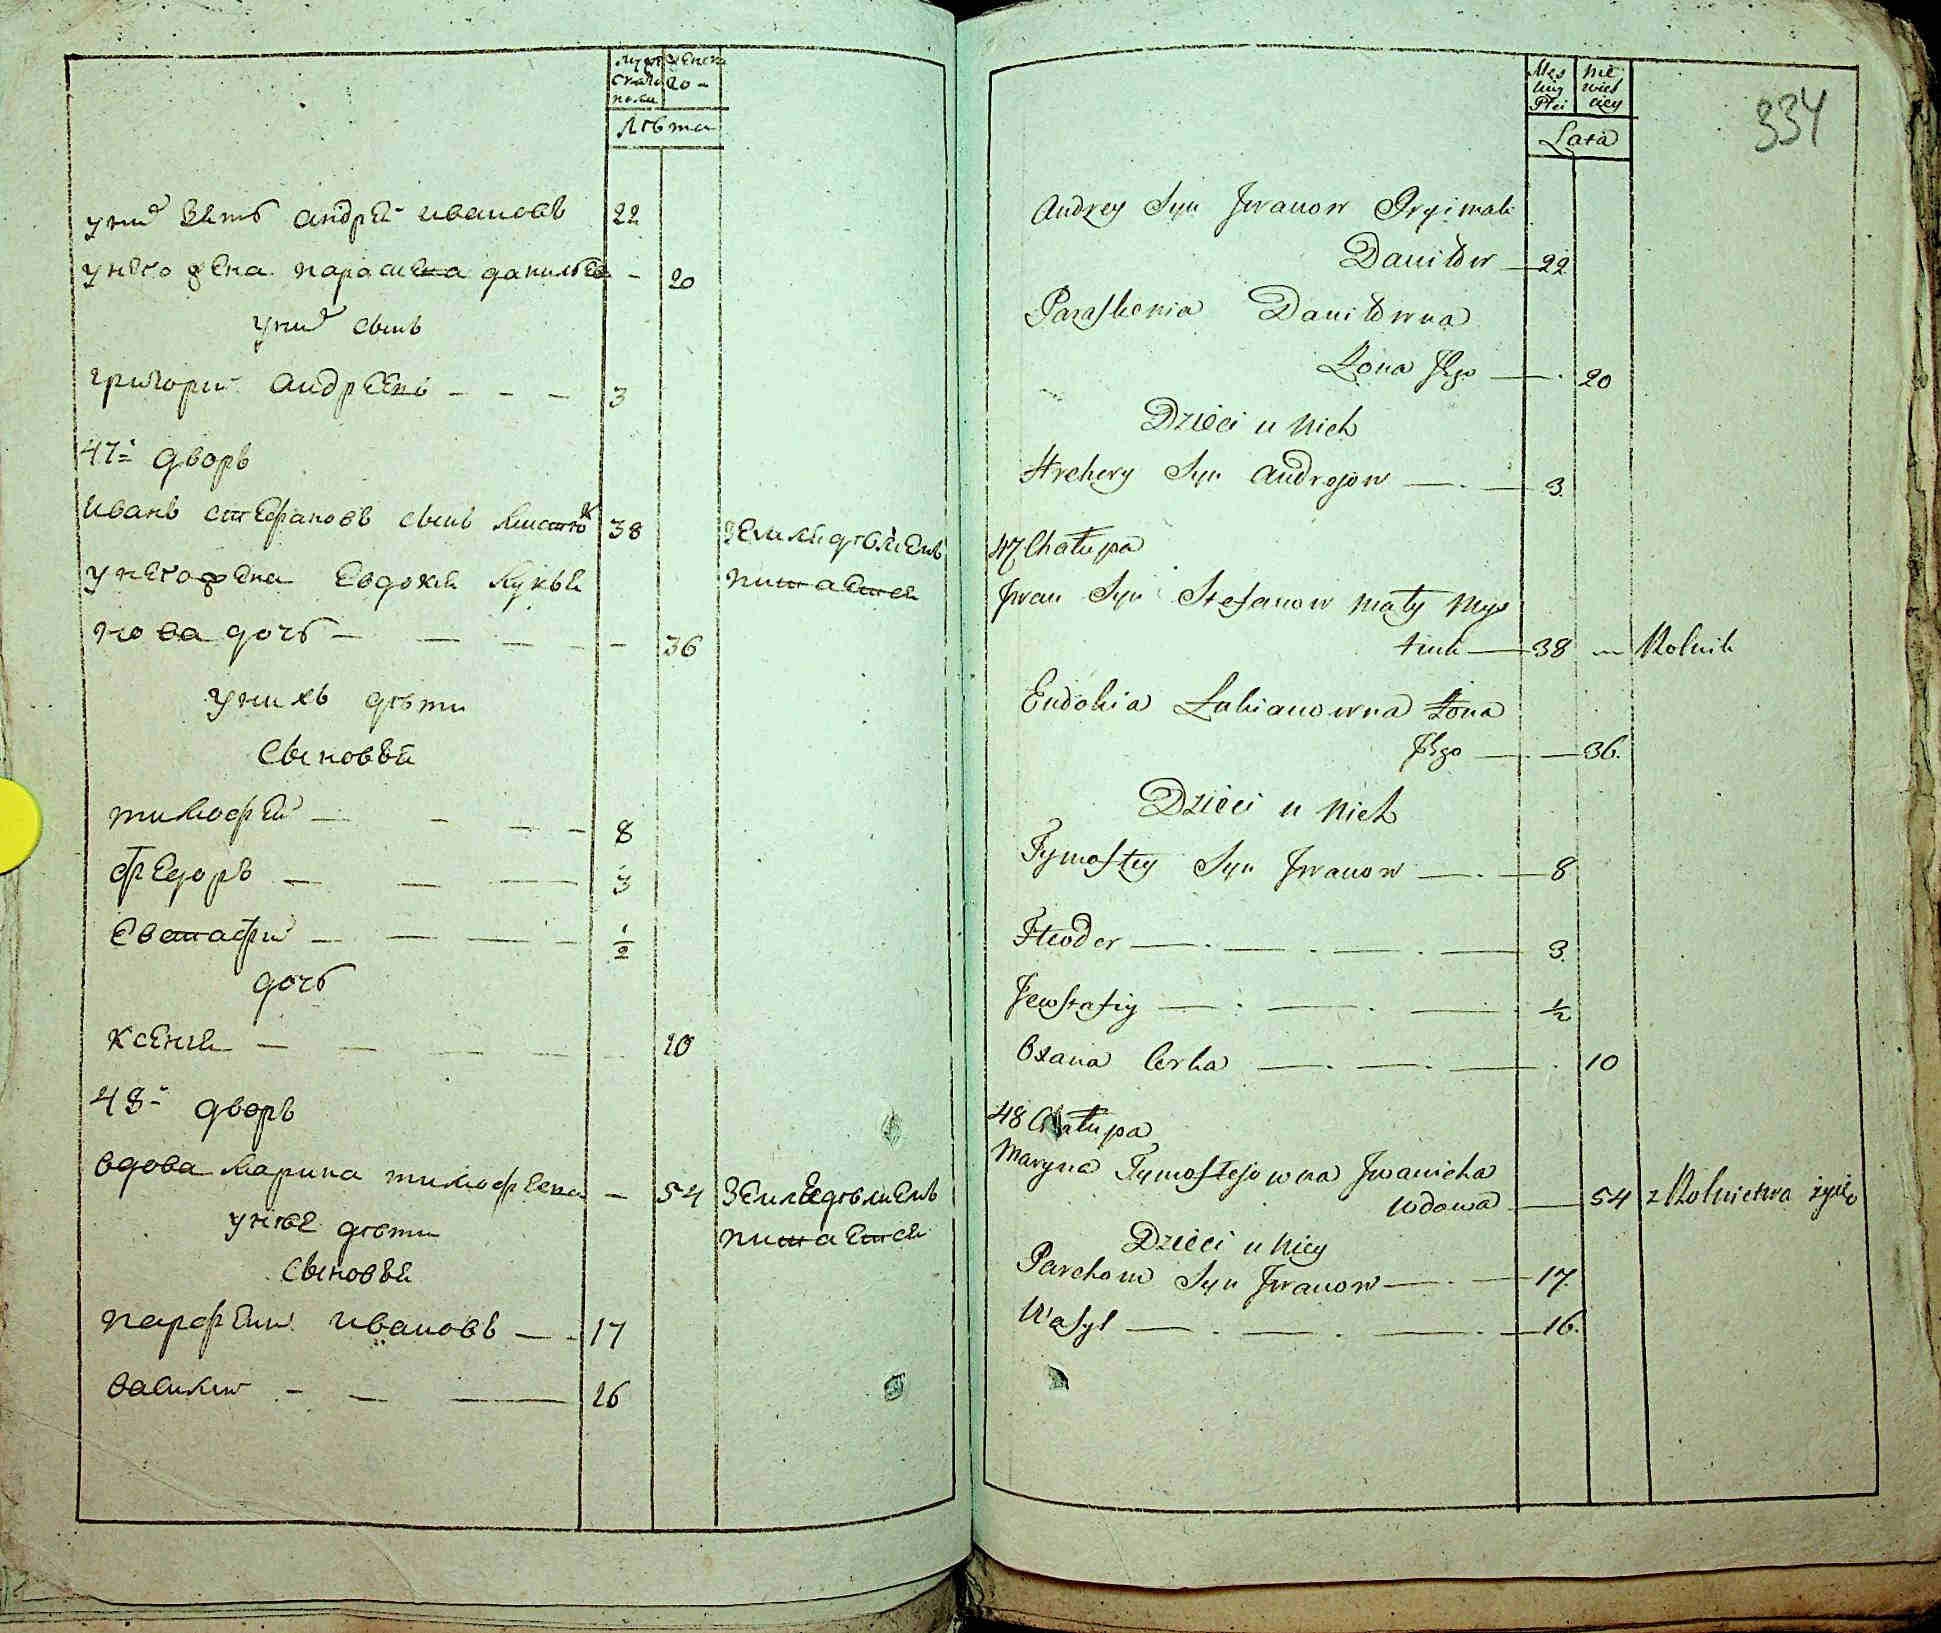 муже
ска
пола
женска
го -
Лѣта
у ни҃ зять андрей ивановъ 22
у него жена парасиева данилова - 20
у ни҃ сынъ
григорий андреевъ - - - 3
47й дворъ
иванъ стефановъ сынъ 38 земледѣлиемъ
у него жена евдокия лукья питается
нова дочь - - - - 36
у нихъ дѣти
сыновья
тимофей - - - - 8
федоръ - - - 3
евстафий - - - - 1/2
дочь
ксения - - - - - 10
48й дворъ
вдова марина тимофеева - 54 земледѣлиемъ
у нее дѣти питается
сыновья
парфений ивановъ - - 17
василий - - - 16
334
Męs
kiey
Płci
nie
wieś
ciey
Lata
Andrey Syn Jwanow Pryimak
Daniłow - 22
Paraskewia Daniłowna
Żona Jego - 20
Dzieci u Nich
Hrehory Syn Androjow - 3
47 Chałupa
Jwan Syn Stefanow Mały Mys
tiuk - 38 - Rolnik
Eudokia Łukianowna Żona
Jego - 36.
Dzieci u Nich
Tymoftey Syn Jwanow - 8
Fteoder - 3.
Jewstafiy - 1/2
Oxana Corka - 10
48 Chałupa
Maryna Tymoftejowna Jwanicha
Wdowa - 54 z Rolnictwa żyie
Dzieci u Niey
Parchom Syn Jwanow - 17.
Wasyl - 16.